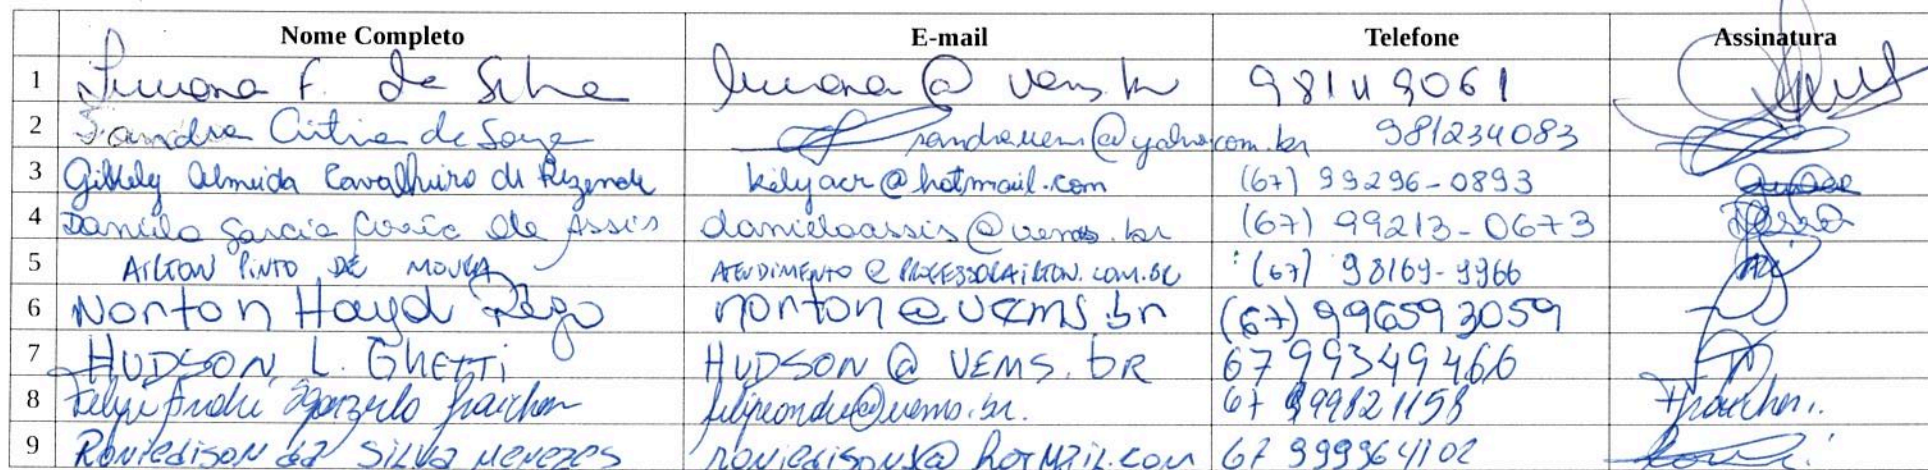 Nome Completo E-mail Telefone Assinatura
1 Luciana F. da Silva luciana@uems.br 98149061
2 Sandra Cristina de Souza sandrauems@yahoo.com.br 981234083
3 Gilkely Almeida Cavalheiro de Rezende kelyacr@hotmail.com (67) 99296-0893
4 Danielo Garcia Corrêa de Assis danieloassis@uems.br (67) 99213-0673
5 AILTON PINTO DE MOURA ATENDIMENTO@PROFESSORAILTON.COM.BR (67) 98169-9966
6 Norton Hayd Rego norton@uems.br (67) 996593059
7 HUDSON L. GHETTI HUDSON@UEMS.bR 67 99349466
8 Felipe André fraichen felipeandre@uems.br. 67 999821158
9 Roniedison da SILVA MENEZES roniedisons@hotmail.com 67 999964102